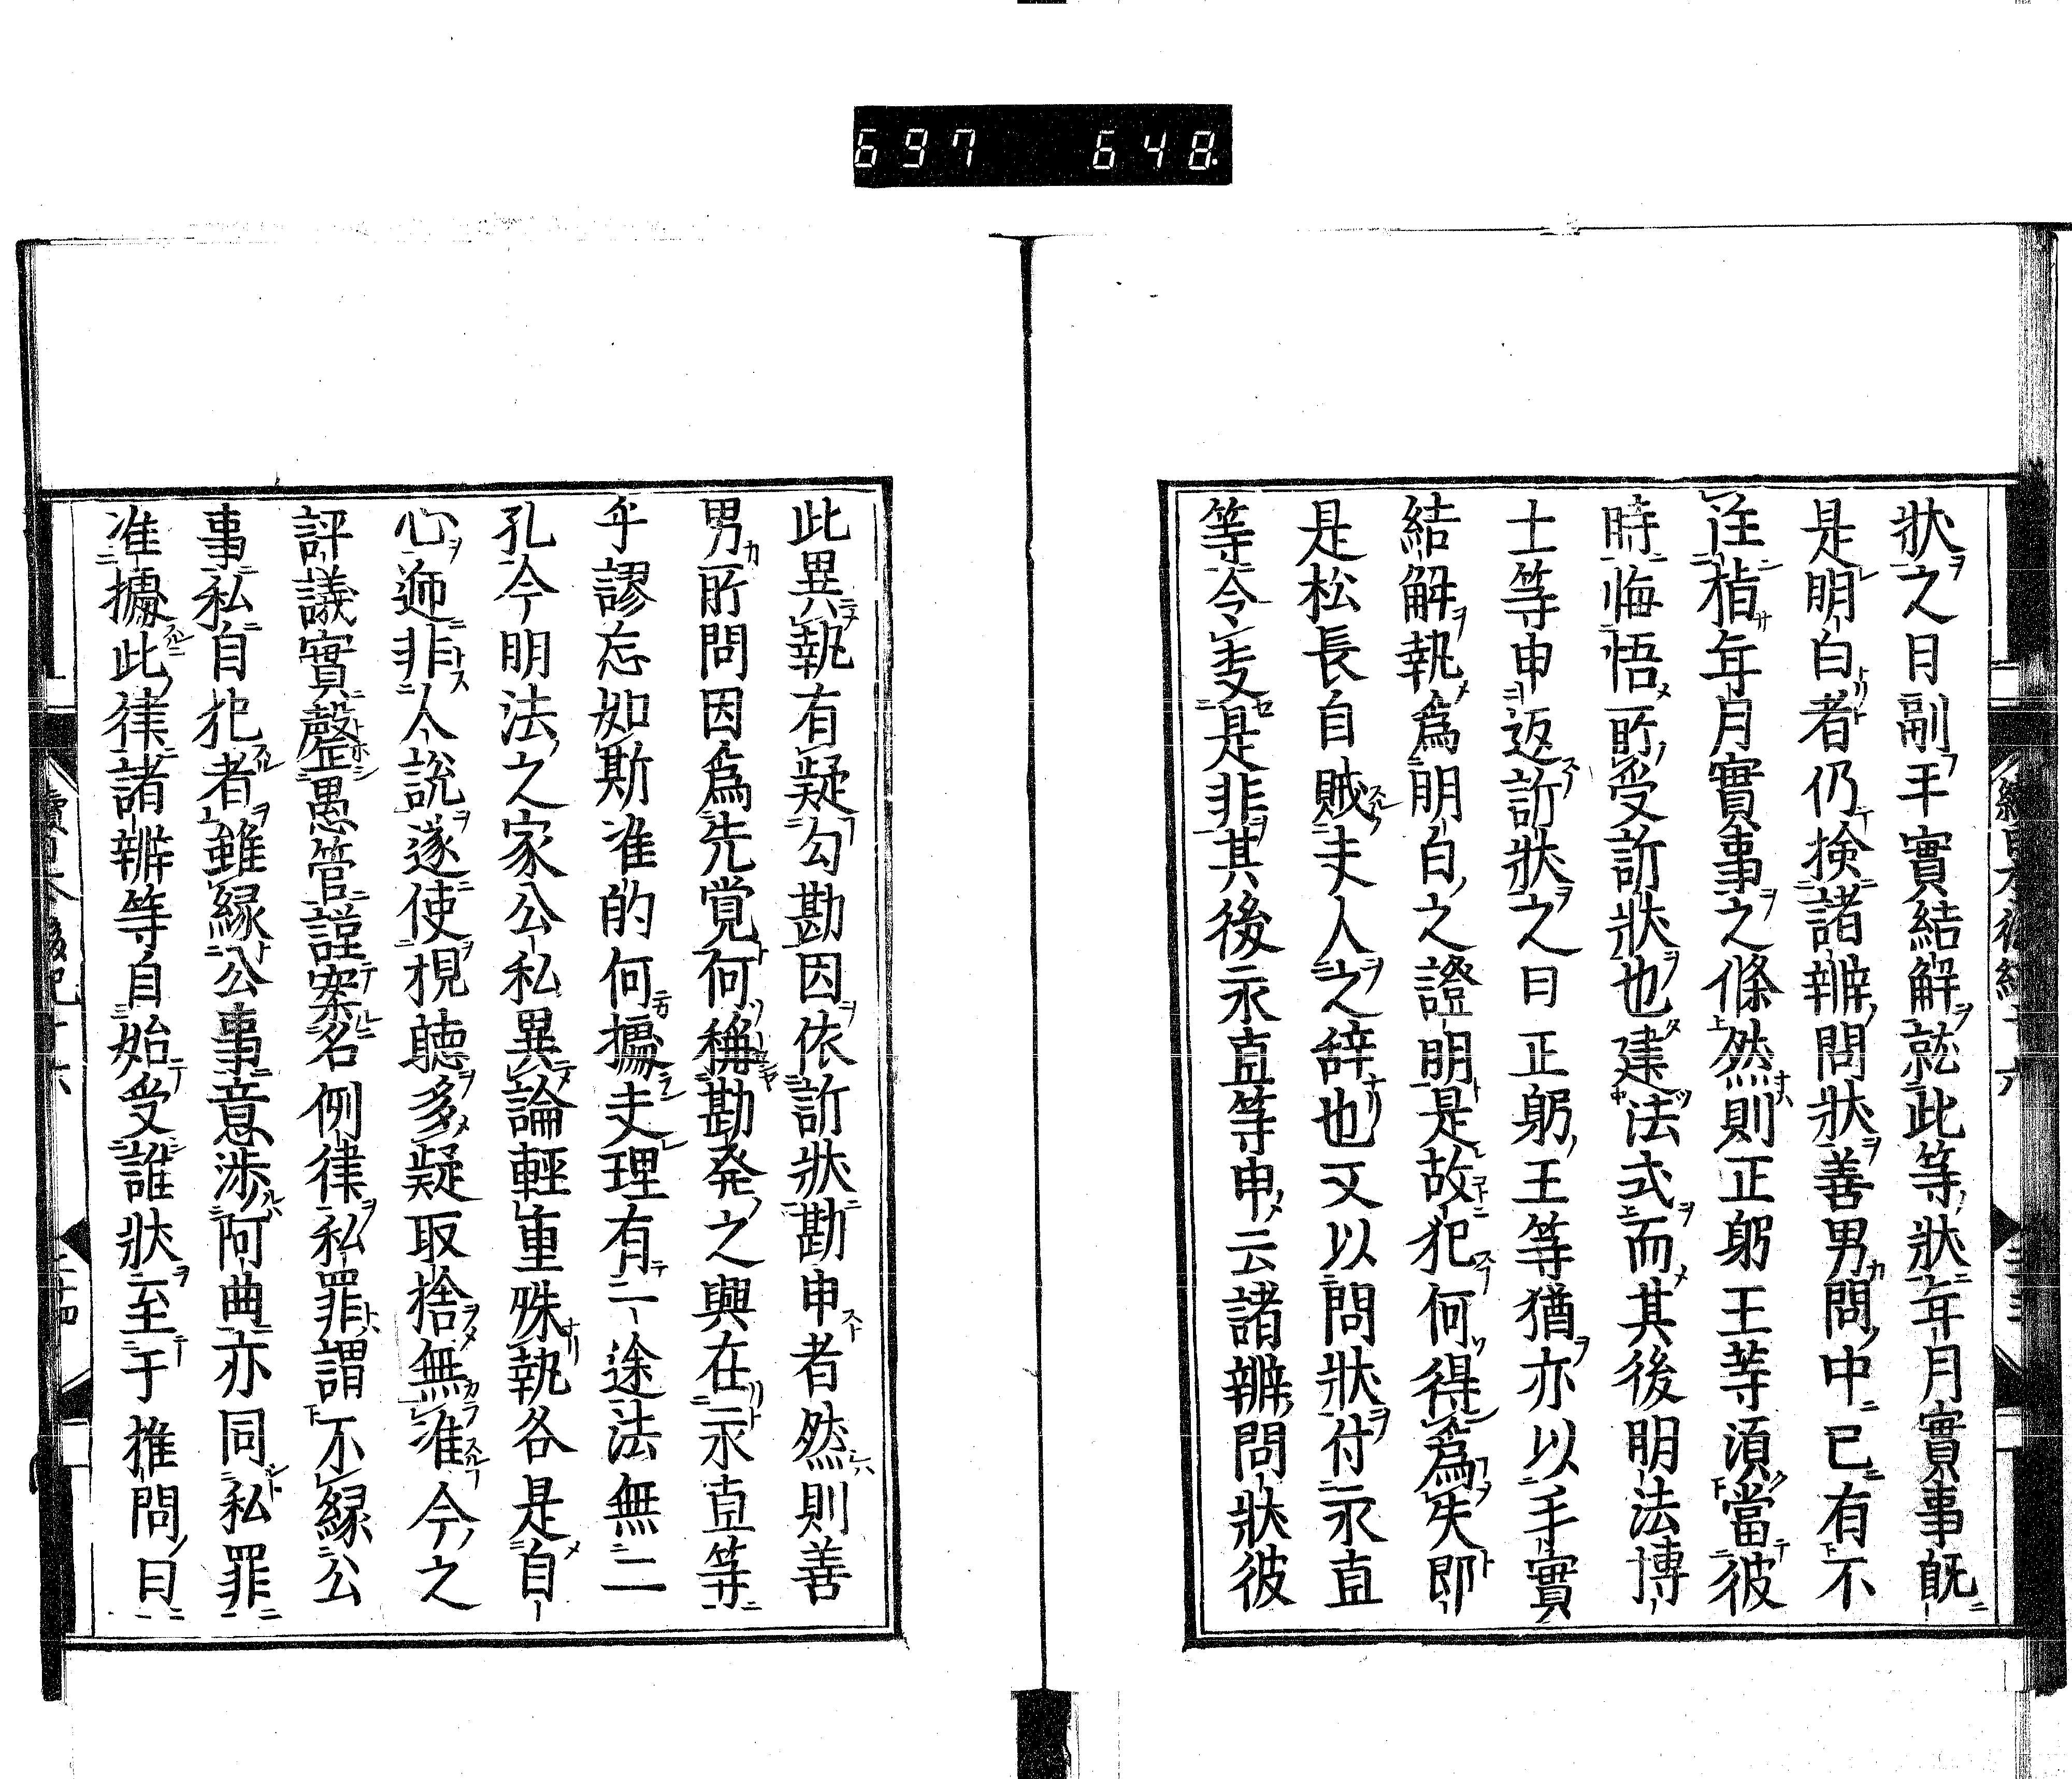 697 648
狀之日副手實結解就此等狀年月實事既
是明白者仍檢諸辨問狀善男問中已有不
注楷年月實事之條然則正躬王等湏當彼
時悔悟所受訢狀也建法式而其後明法博
士等申返訢狀之日正躬王等猶亦以手實
結解執爲明白之證明是故犯何得爲失即
是松長自賊夫人之辞也又以問狀付永直
等令㝎是非其後永直等申云諸辨問狀彼
此異執有疑勾勘因依訢狀勘申者然則善
男所問因爲先覚何稱勘発之興在永直等
乎謬忘如斯准的何據夫理有二途法無二
孔今明法之家公私異論輕重殊執各是自
心迊非人說遂使視聽多疑取捨無准今之
評議實罄愚管謹案名例律私罪謂不緣公
事私自犯者雖緣公事意渉阿曲亦同私罪
准據此律諸辨等自始受誰狀至于推問日